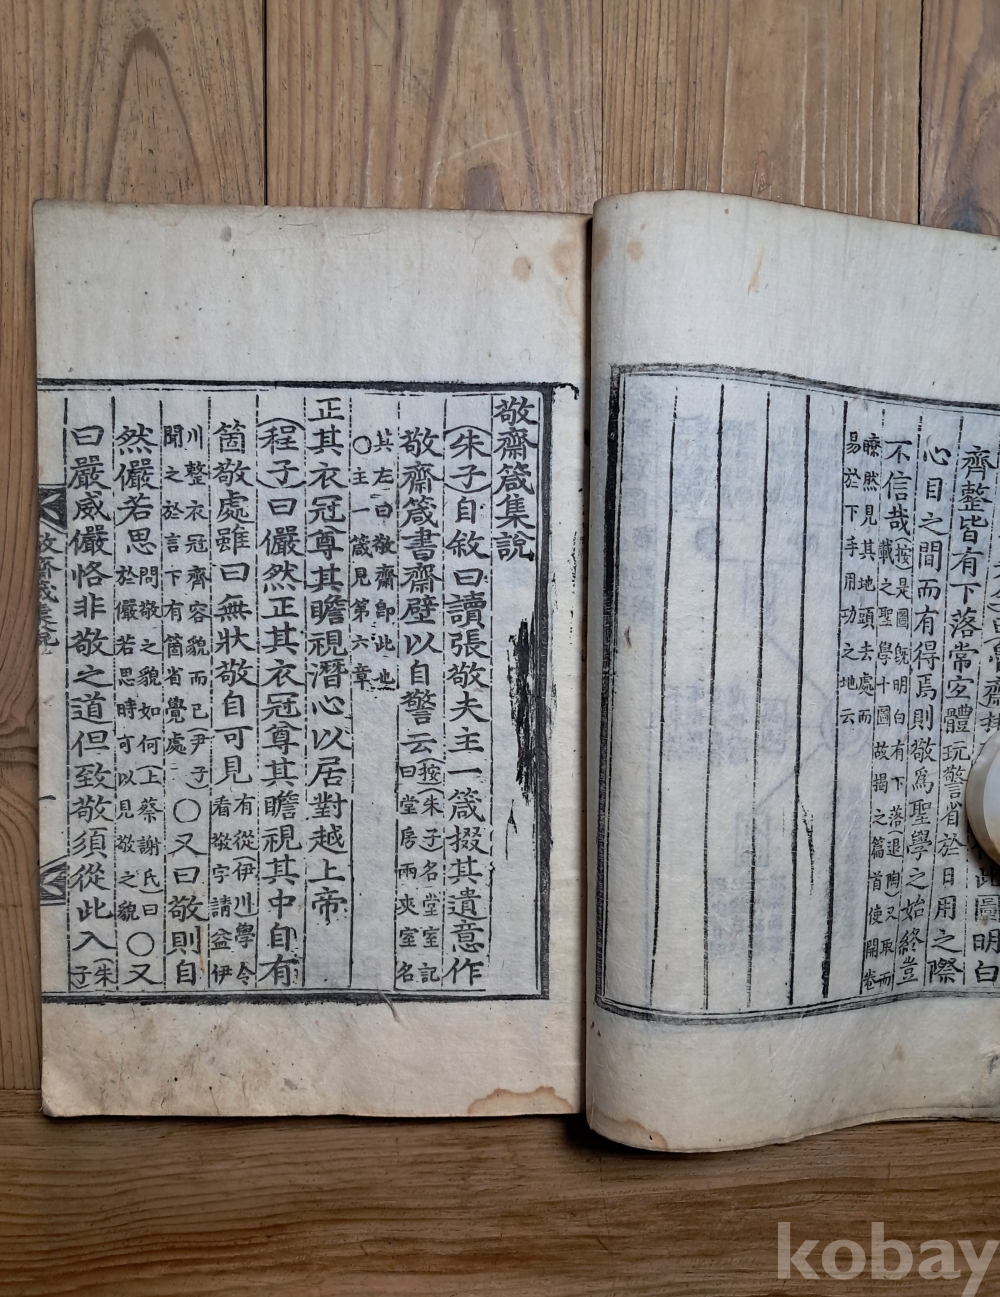 齋
此圖明白
齊整皆有下落常宜體玩警省於日用之際
心目之間而有得焉則敬爲聖學之始終豈
不信哉(按)是圖旣明白有下落(退陶)又取而載之聖學十圖故揭之篇首使開卷
瞭然見其地頭去處而易於下手用功之地云
敬齋箴集說
(朱子)自敘曰讀張敬夫主一箴掇其遺意作
敬齋箴書齋壁以自警云(按)(朱子)名堂室記曰堂房兩夾室名
其左曰敬齋卽此也〇主一箴見第六章
正其衣冠尊其瞻視潛心以居對越上帝
(程子)曰儼然正其衣冠尊其瞻視其中自有
箇敬處雖曰無狀敬自可見有從(伊川)學令看敬字請益伊
川整衣冠齊容貌而已(尹子)聞之於言下有箇省覺處〇又曰敬則自
然儼若思問敬之貌如何(上蔡謝氏曰)於儼若思時可以見敬之貌〇又
曰嚴威儼恪非敬之道但致敬須從此入(朱子
敬齋箴集說
一
kobay